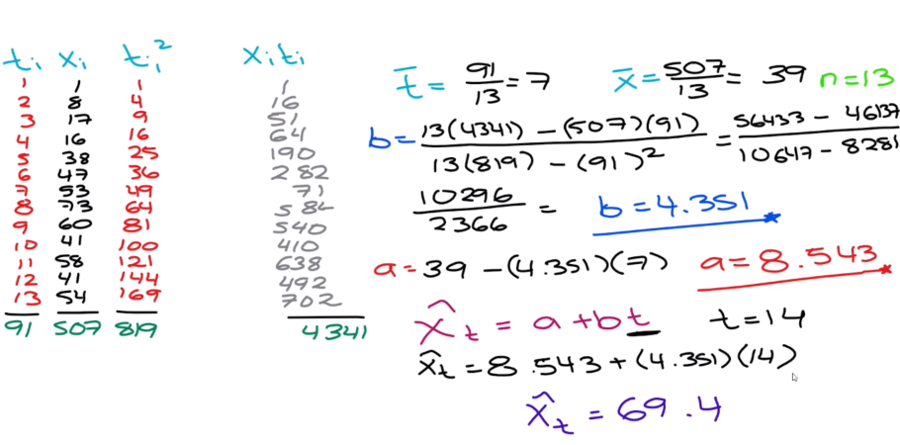 tᵢ xᵢ tᵢ² xᵢtᵢ
1 1 1 1
2 8 4 16
3 17 9 51
4 16 16 64
5 38 25 190
6 47 36 282
7 53 49 71
8 73 64 584
9 60 81 540
10 41 100 410
11 58 121 638
12 41 144 492
13 54 169 702
91 507 819 4341
t̄ = 91/13 = 7 x̄ = 507/13 = 39 n=13
b = 13(4341) − (507)(91) / 13(819) − (91)² = 56433 − 46137 / 10647 − 8281
10296/2366 = b=4.351
a=39 −(4.351)(7) a=8.543
x̂ₜ = a+bt t=14
x̂ₜ = 8.543+(4.351)(14)
x̂ₜ = 69.4